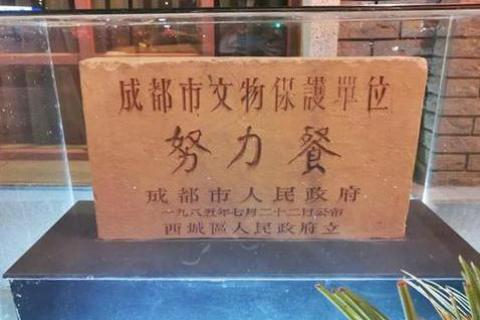 成都市文物保護單位
努力餐
成都市人民政府
一九八五年七月二十二日公布
西城區人民政府立